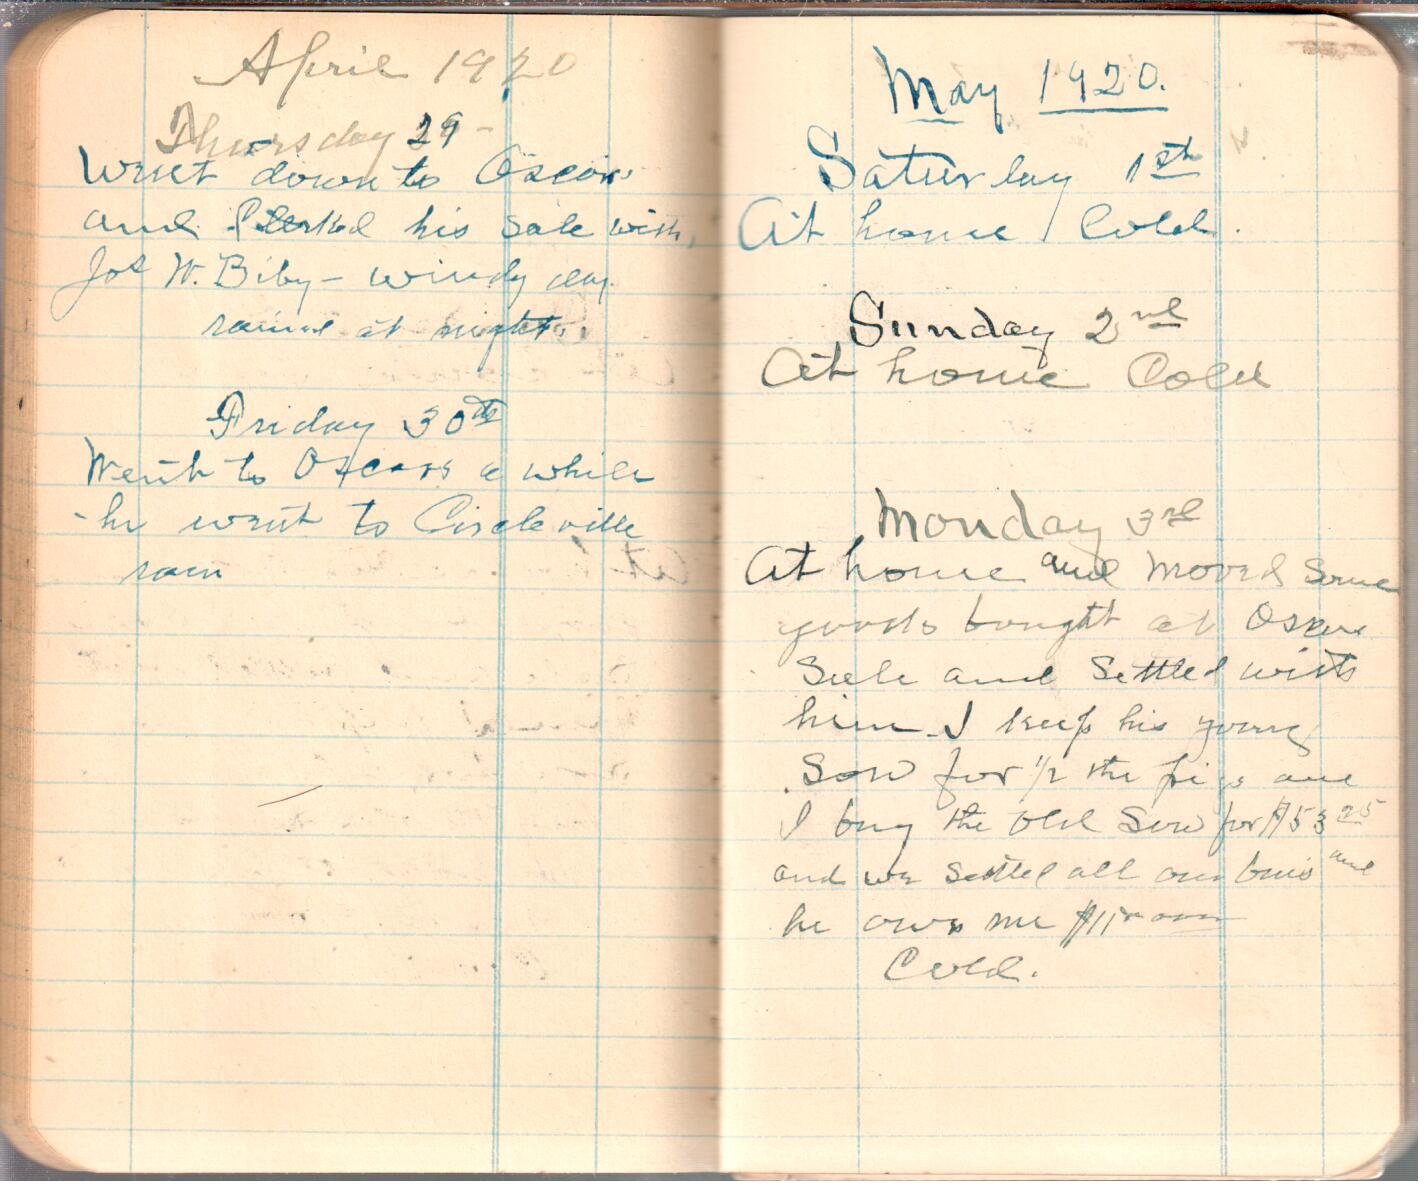 April 1920
Thursday 29 -
Went down to Oscars
and Clerked his Sale with
Jos W. Biby - windy day
rained at night.
Friday 30th
Went to Oscars a while
- he went to Circleville
rain
May 1920.
Saturday 1st
At home Cold.
Sunday 2nd
At home Cold
Monday 3rd
At home and moved some
goods bought at Oscars
Sale and Settled with
him. I keep his young
Sow for 1/2 the pigs and
I buy the old Sow for $53 25
and we settled all our buis and
he owes me
Cold.